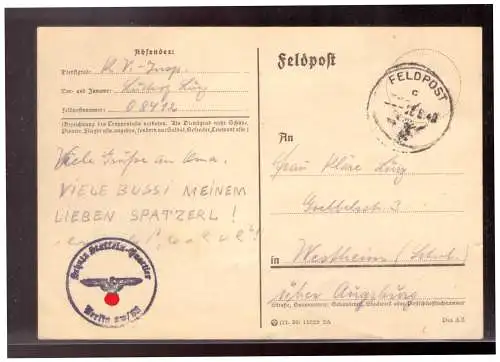 Absender:
Dienstgrad: K. V.-Insp.
Vor- und Zuname: Ludwig Lutz
Feldpostnummer: 08412
(Bezeichnung des Truppenteils verboten. Als Dienstgrad nicht Schütze,
Pionier, Flieger usw. angeben, sondern nur Soldat, Gefreiter, Leutnant usw.)
Viele Grüße an Oma.
VIELE BUSSI MEINEM
LIEBEN SPATZERL!
Schutz Quartier
Berlin
Feldpost
FELDPOST
c
An
Frau Kläre Lutz
Goebbelsstr. 3
in Westheim (Schwb.)
über Augsburg
Straße, Hausnummer, Gebäudeteil, Stockwerk oder Postschließfachnummer
Din A 6